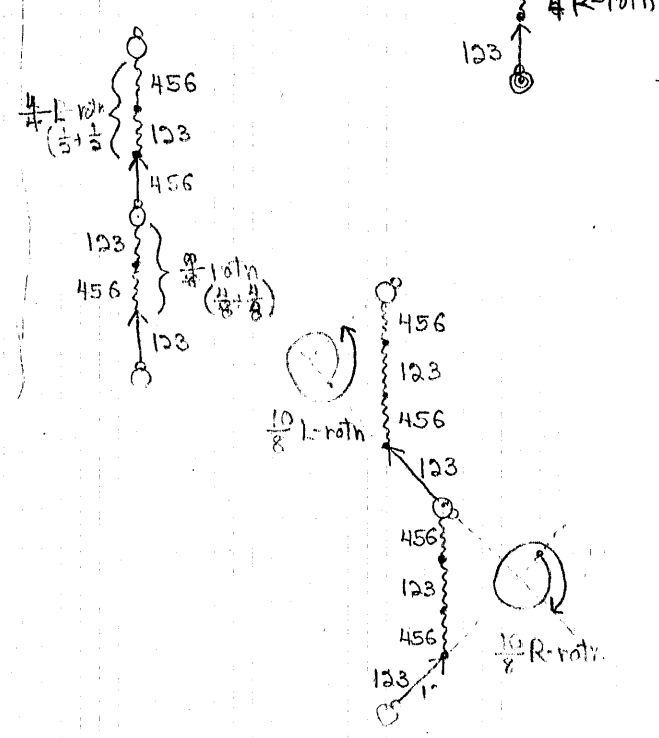 R-rotn
123
456
4/4 L-rotn
(1/2+1/2
123
456
123
8/8-rotn
456
(4/8+4/8)
123
456
123
10/8 L-rotn
456
123
456
123
456
10/8 R-rotn.
123